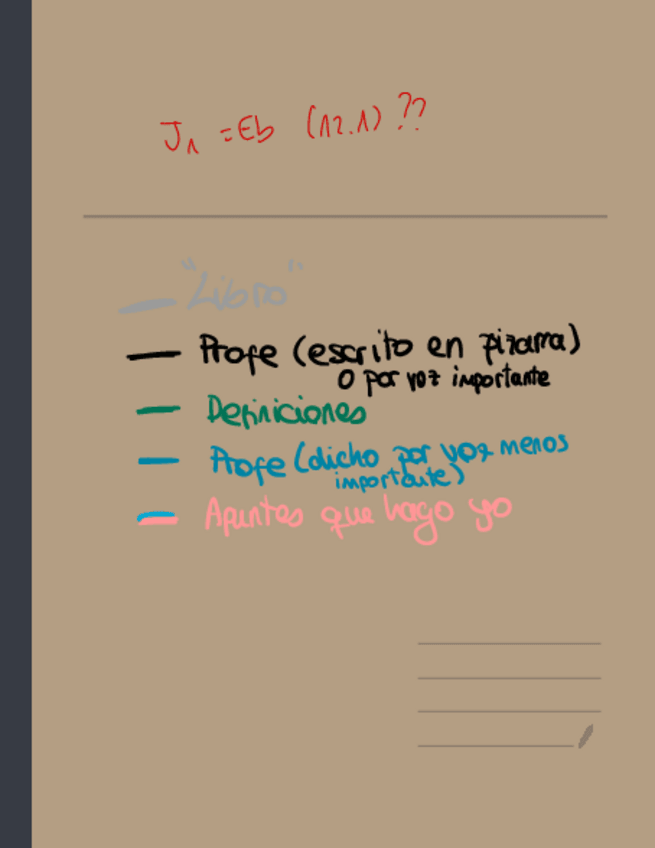 J₁ = Eb (12.1) ??
"Libro"
Profe (escrito en pizarra)
O por voz importante
Definiciones
Profe (dicho por voz menos
importante)
Apuntes que hago yo